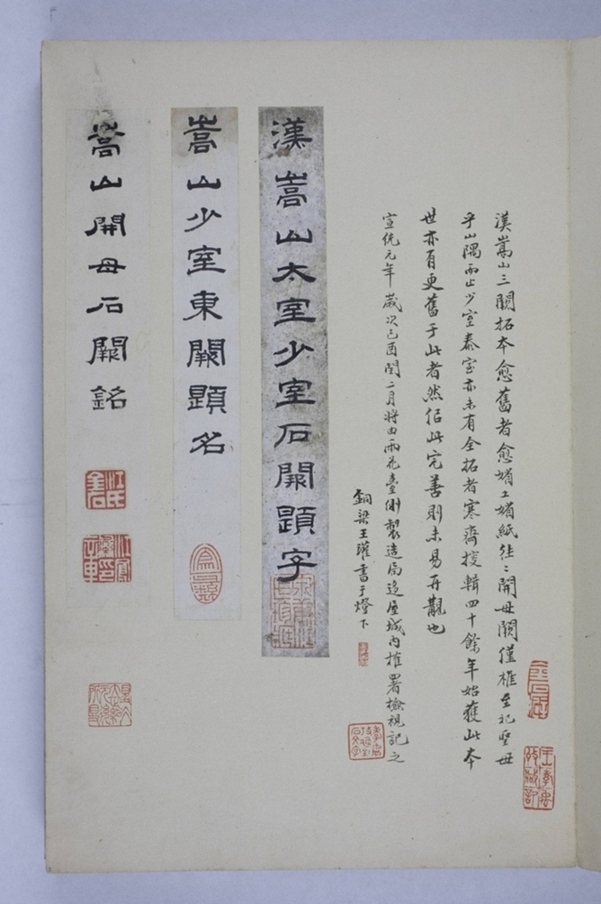 漢嵩山三闕拓本愈舊者愈惜工惜紙往〻開母闕僅椎至祀聖母
乎山隅而止少室泰室亦未有全拓者寒齋搜輯四十餘年始獲此本
世亦有更舊于此者然似此完善則未易再覯也
宣統元年歲次己酉閏二月將由雨花臺側製造局迻屋城内榷署檢視記之
銅梁王瓘書于燈下
漢嵩山太室少室石闕題字
嵩山少室東闕題名
嵩山開母石闕銘